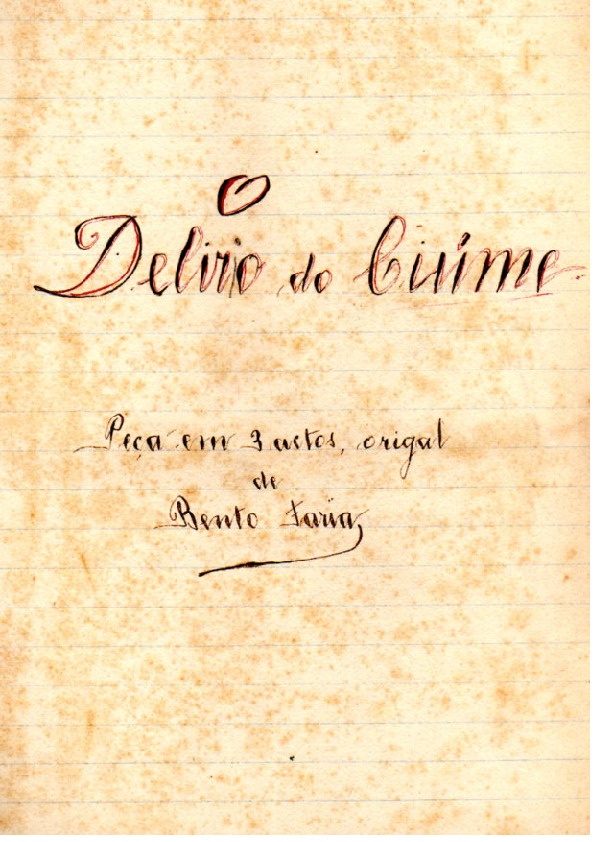 O
Delirio do Ciúme
Peça em 3 actos, origal
de
Bento Faria